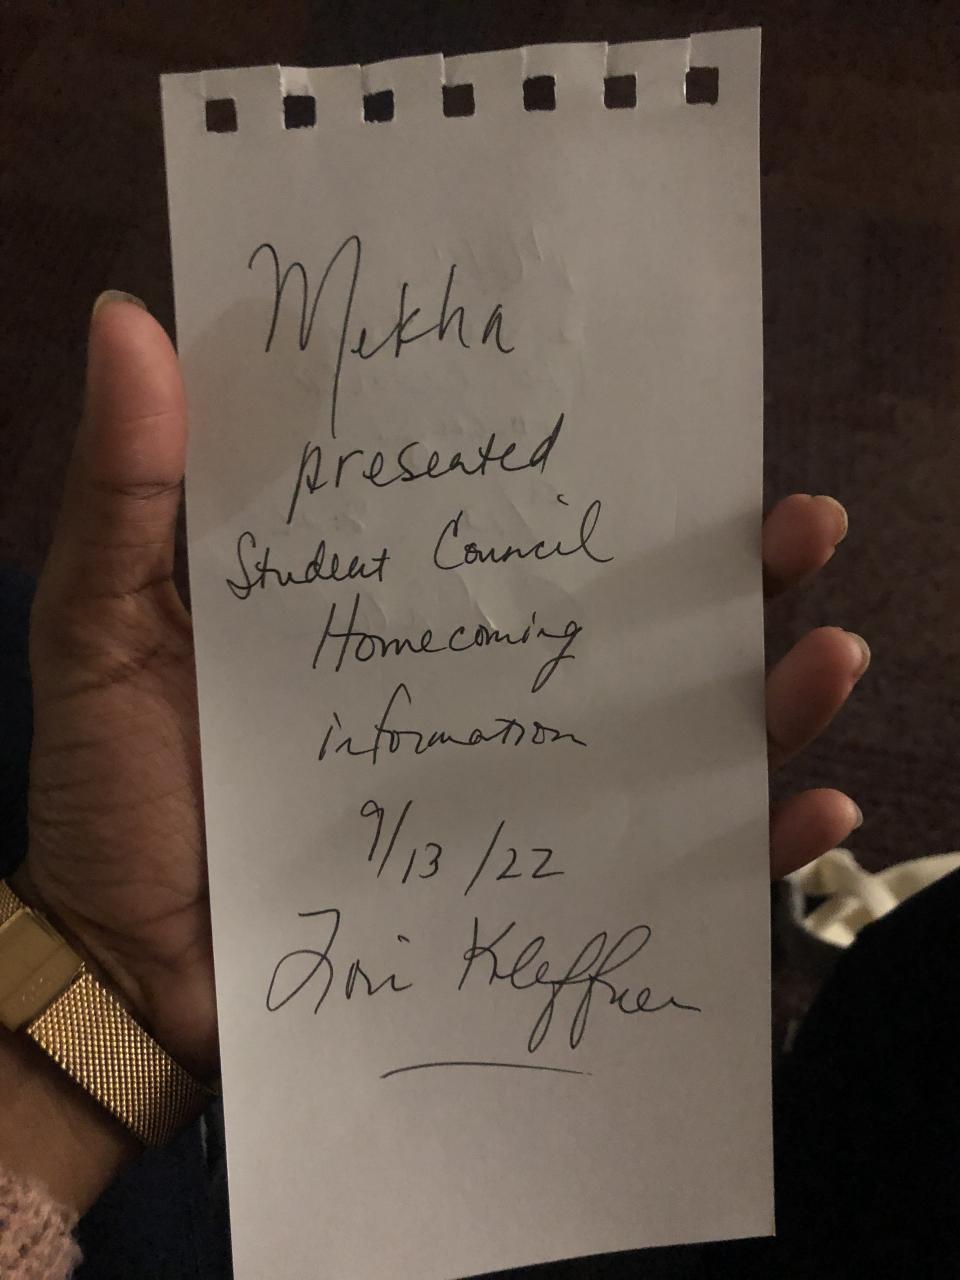 Mekha
presented
Student Council
Homecoming
information
9/13/22
Lori Kleffner